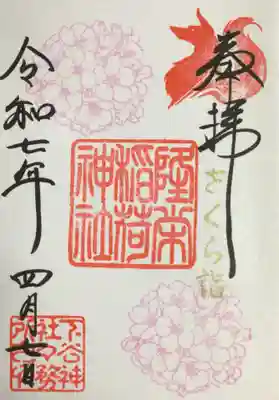 奉拝
さくら詣
隆栄
稲荷
神社
令和七年 四月七日
下谷神
社社務
所印